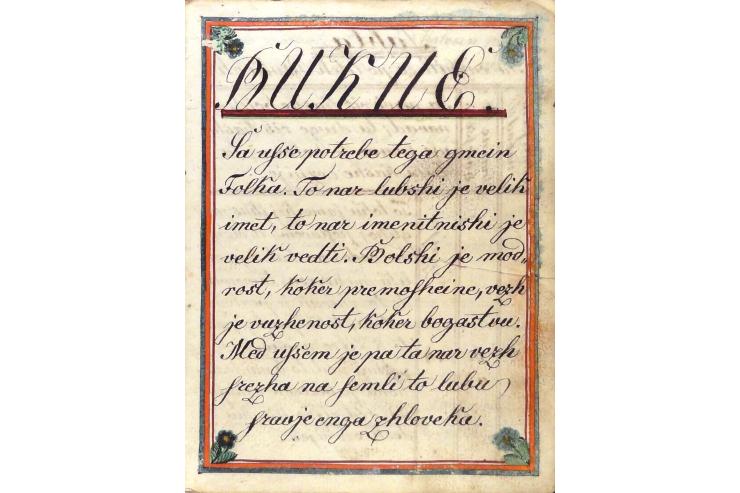 BUKUE.
Sa usse potrebe tega gmein
Folka. To nar lubshi je velik
imet, to nar imenitnishi je
velik vedti. Bolshi je mod=
rost, koker premosheine, vezh
je vuzhenost, koker bogastvu.
Med ussem je pa ta nar vezh
srezha na semli to lubu
sravje enga zhloveka.